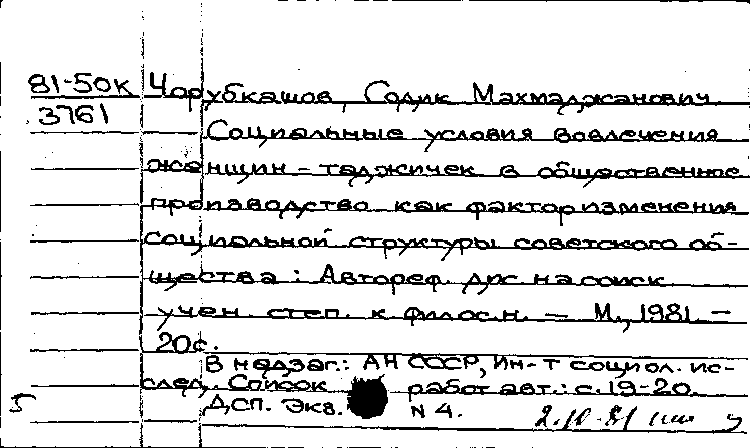 81-50к Чорубкашов, Содик Махмаджанович.
3761
Социальные условия вовлечения
женщин-таджичек в общественное
производство как фактор изменения
социальной структуры советского об-
щества: Автореф. дис на соиск.
учен. степ. к. филос.н. - М., 1981. -
20с.
В надзаг.: АН СССР, Ин-т социол. ис-
след. Список работ авт.: с.19-20.
5 ДСП. Экз. N 4.